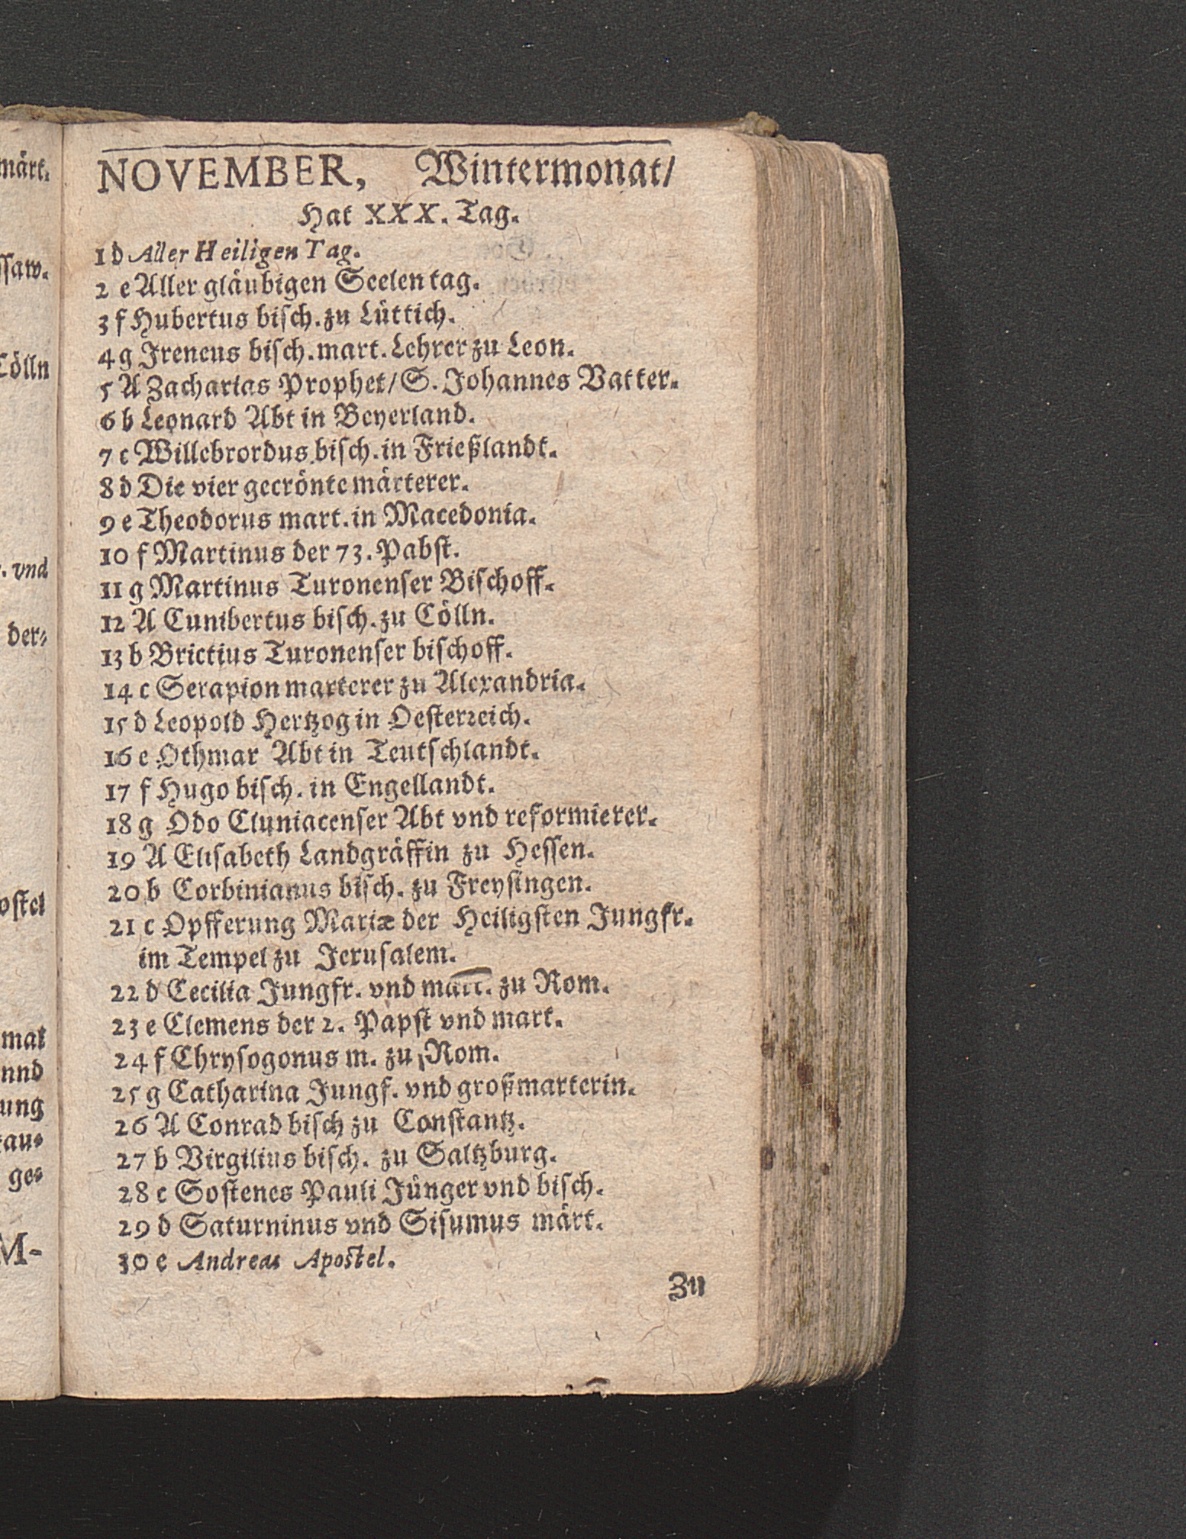 märt.
ssaw.
Cölln
. vnd
der-
ostel
mat
nnd
ung
tau-
ge-
M-
NOVEMBER, Wintermonat/
Hat XXX. Tag.
1 d Aller Heiligen Tag.
2 e Aller gläubigen Seelen tag.
3 f Hubertus bisch. zu Lüttich.
4 g Ireneus bisch. mart. Lehrer zu Leon.
5 A Zacharias Prophet/ S. Johannes Vatter.
6 b Leonard Abt in Beyerland.
7 c Willebrordus bisch. in Frießlandt.
8 d Die vier gecrönte märterer.
9 e Theodorus mart. in Macedonia.
10 f Martinus der 73. Pabst.
11 g Martinus Turonenser Bischoff.
12 A Cunibertus bisch. zu Cölln.
13 b Brictius Turonenser bischoff.
14 c Serapion marterer zu Alexandria.
15 d Leopold Hertzog in Oesterreich.
16 e Othmar Abt in Teutschlandt.
17 f Hugo bisch. in Engellandt.
18 g Odo Cluniacenser Abt vnd reformierer.
19 A Elisabeth Landgräffin zu Hessen.
20 b Corbinianus bisch. zu Freysingen.
21 c Opfferung Mariæ der Heiligsten Jungfr.
im Tempel zu Jerusalem.
22 d Cecilia Jungfr. vnd mart. zu Rom.
23 e Clemens der 2. Papst vnd mart.
24 f Chrysogonus m. zu Rom.
25 g Catharina Jungf. vnd großmarterin.
26 A Conrad bisch zu Constantz.
27 b Virgilius bisch. zu Saltzburg.
28 c Sostenes Pauli Jünger vnd bisch.
29 d Saturninus vnd Sisumus märt.
30 e Andreas Apostel.
Zu